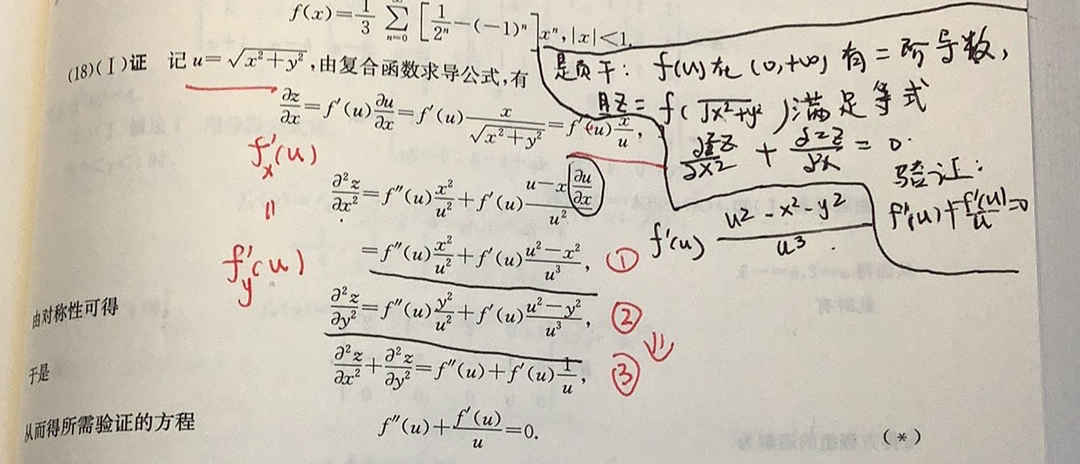 f(x)=\frac{1}{3}\sum_{n=0}^{∞}[\frac{1}{2^n}-(-1)^n]x^n, |x|<1.
(18)(Ⅰ)证 记 u=\sqrt{x^2+y^2},由复合函数求导公式,有
\frac{∂z}{∂x}=f'(u)\frac{∂u}{∂x}=f'(u)\frac{x}{\sqrt{x^2+y^2}}=f'(u)\frac{x}{u},
\frac{∂^2z}{∂x^2}=f''(u)\frac{x^2}{u^2}+f'(u)\frac{u-x\frac{∂u}{∂x}}{u^2}
=f''(u)\frac{x^2}{u^2}+f'(u)\frac{u^2-x^2}{u^3}, ①
由对称性可得 \frac{∂^2z}{∂y^2}=f''(u)\frac{y^2}{u^2}+f'(u)\frac{u^2-y^2}{u^3}, ②
于是 \frac{∂^2z}{∂x^2}+\frac{∂^2z}{∂y^2}=f''(u)+f'(u)\frac{1}{u}, ③
⇓
从而得所需验证的方程 f''(u)+\frac{f'(u)}{u}=0. (*)
f'_x(u)
=
f'_y(u)
f(u)在(0,+∞)有二阶导数,
且z=f(\sqrt{x^2+y^2})满足等式
\frac{∂^2z}{∂x^2}+\frac{∂^2z}{∂^2x}=0.
验证:
f''(u)+\frac{f'(u)}{u}=0
f'(u)\frac{u^2-x^2-y^2}{u^3}.